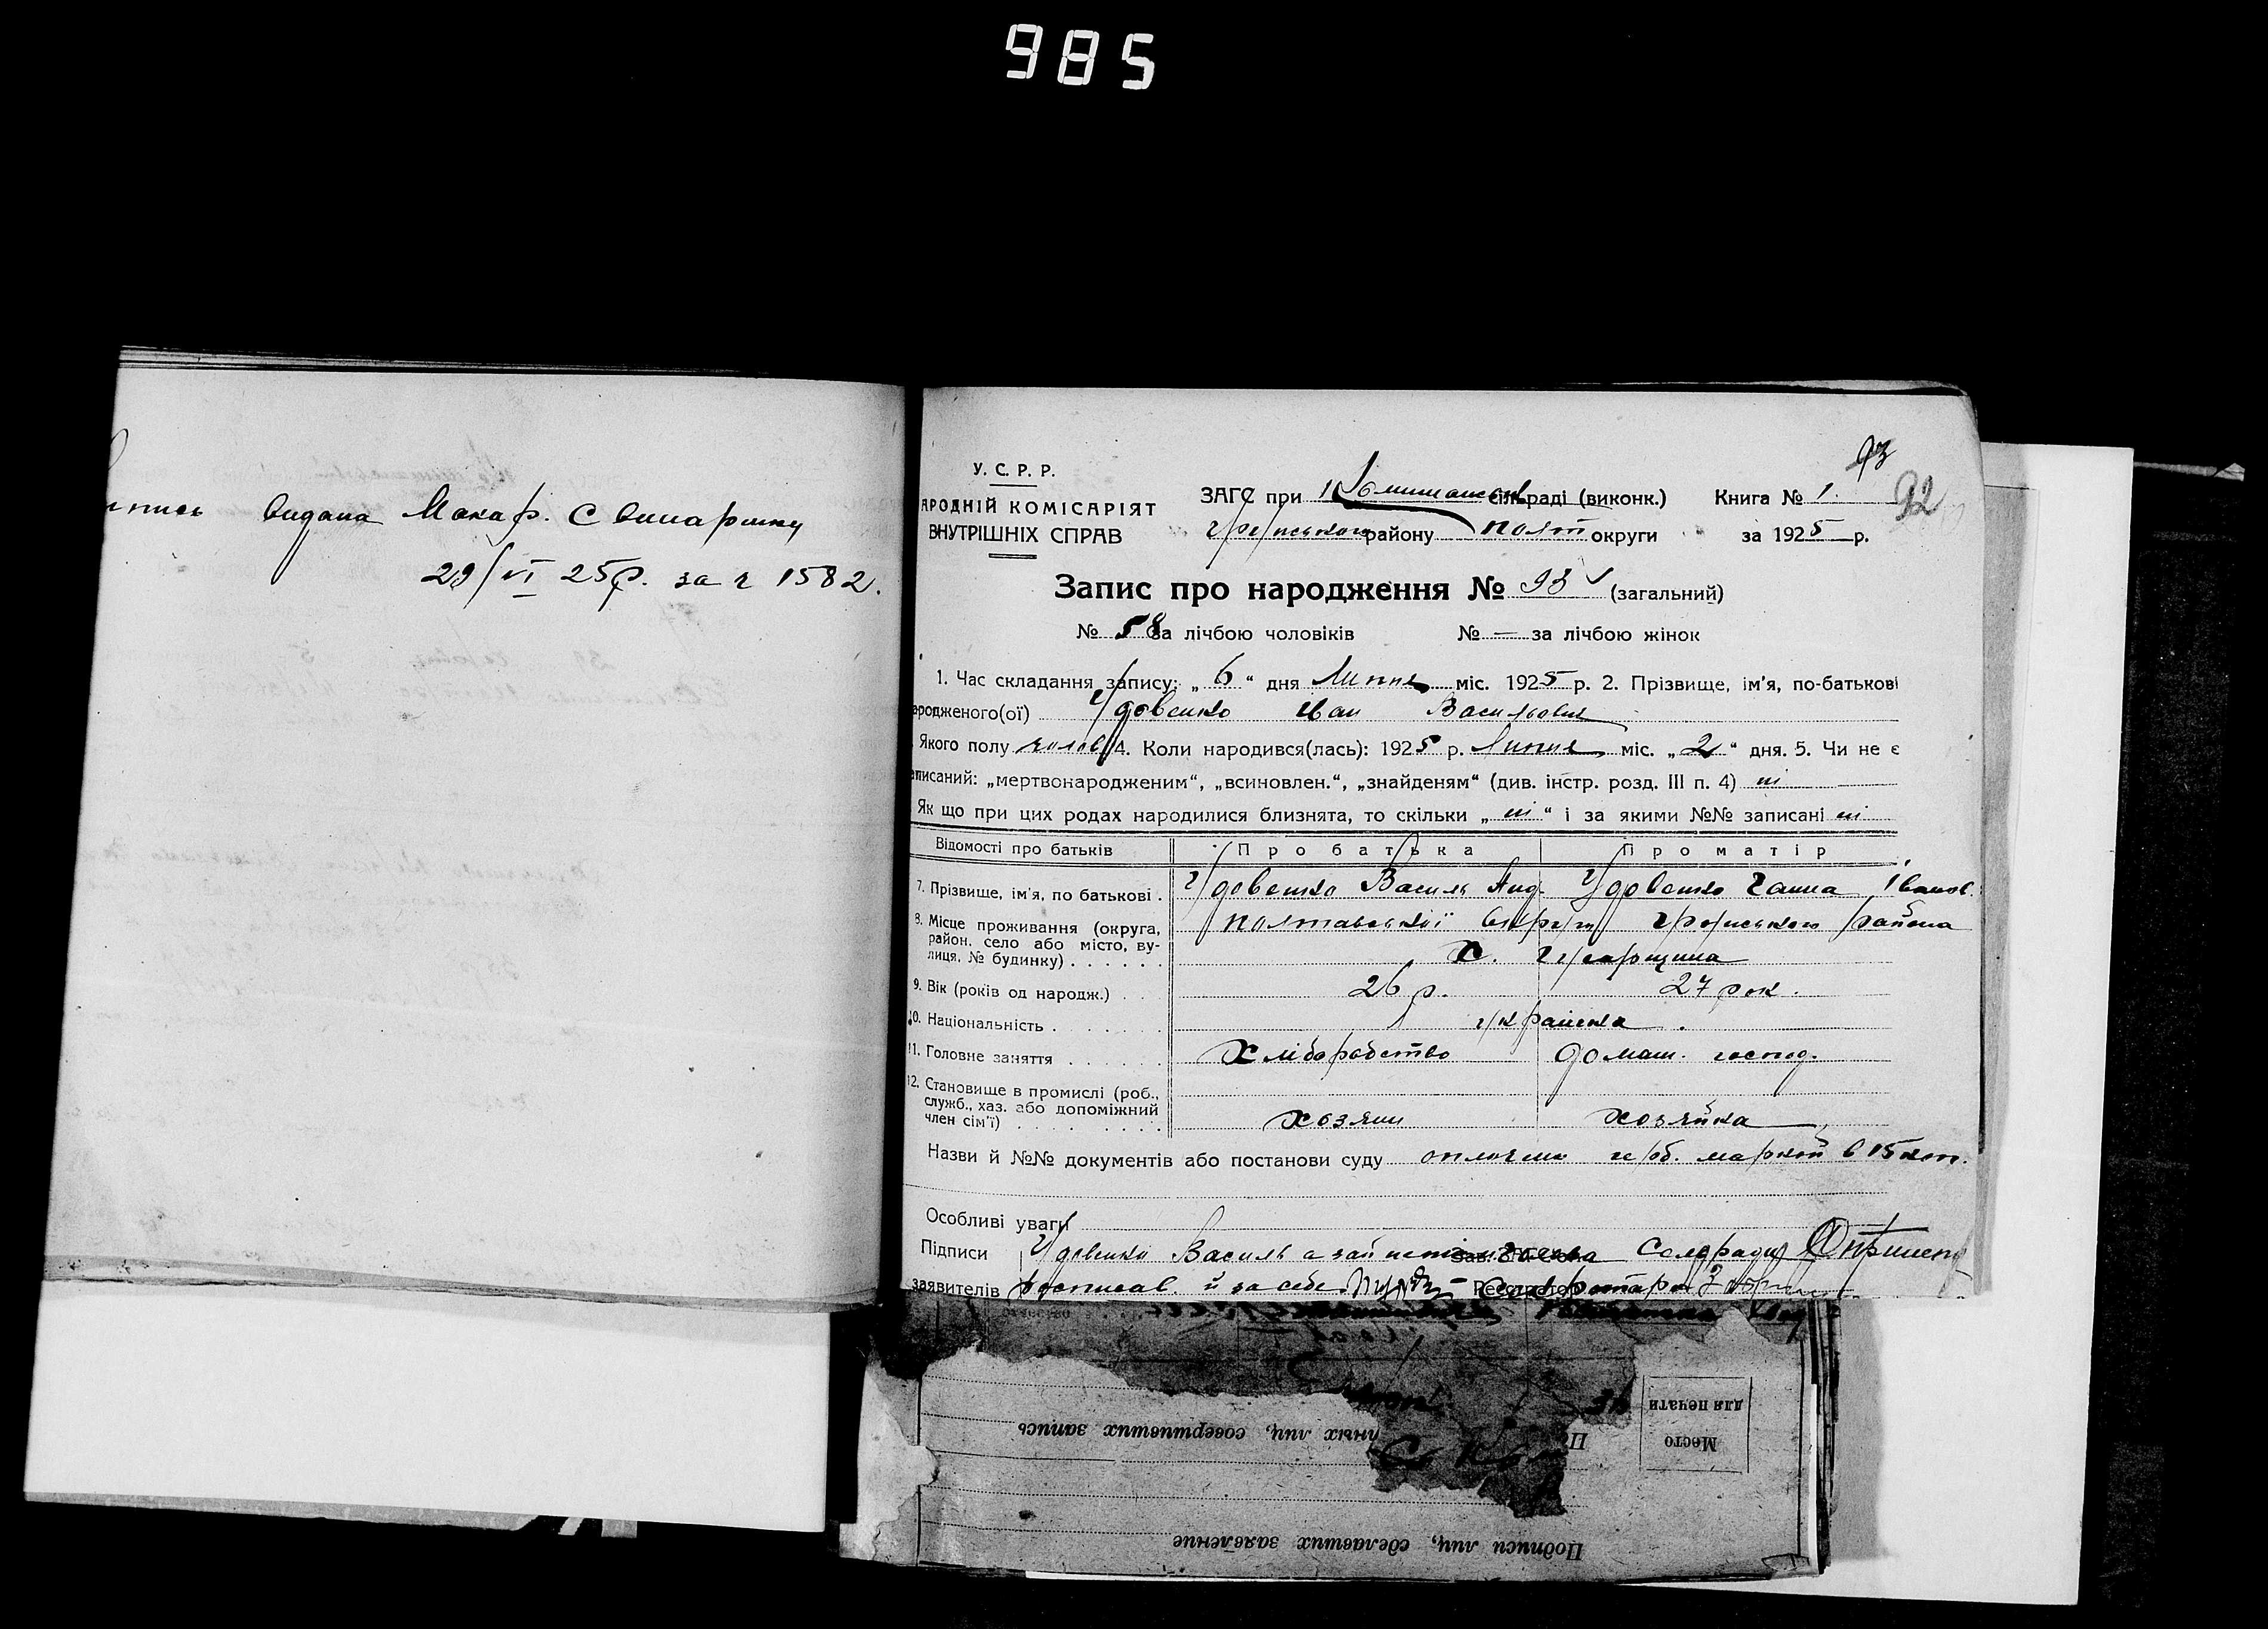 985
видана Макар. Свинаренку
29/VI 25р. за ч 1582.
93
92
У. С. Р. Р.
АРОДНІЙ КОМІСАРІЯТ
ВНУТРІШНІХ СПРАВ
ЗАГС при сільраді (виконк.) Книга № 1.
району Полт округи за 1925 р.
Запис про народження № 93 (загальний)
№ 58 за лічбою чоловіків № — за лічбою жінок
1. Час складання запису: „ 6 “ дня Липня міс. 1925 р. 2. Прізвище, ім'я, по-батькові
ародженого(ої) Удовенко Іван Васильович
Якого полу чолов 4. Коли народився(лась): 1925 р. Липня міс. „ 2 “ дня. 5. Чи не є
аписаний: „мертвонародженим“, „всиновлен.“, „знайденям“ (див. інстр. розд. III п. 4) ні
Як що при цих родах народилися близнята, то скільки „ ні “ і за якими №№ записані ні
Відомості про батьків Про батька Про матір
7. Прізвище, ім'я, по батькові . Удовенко Василь Анд. Удовенко Ганна Іванов.
8. Місце проживання (округа, район, село або місто, вулиця, № будинку) . . . . . . Полтавської округи района
х.
9. Вік (років од народж.) . . 26 р. 27 рок.
10. Національність . . . . . . українска.
11. Головне заняття . . . . . Хліборобство домаш. господ.
12. Становище в промислі (роб.,
служб., хаз. або допоміжний
член сім'ї) . . . . . . . . . хозяин хозяйка
Назви й №№ документів або постанови суду оплочено герб. маркой в 15 коп.
Особливі уваги
Підписи Удовенко Василь а за Зав. ЗАГС'ом Голова Сельради
заявителів росписав. й за себе Реєстратор
Место
для печати
лиц, совершивших запись
Подписи лиц, сделавших заявление